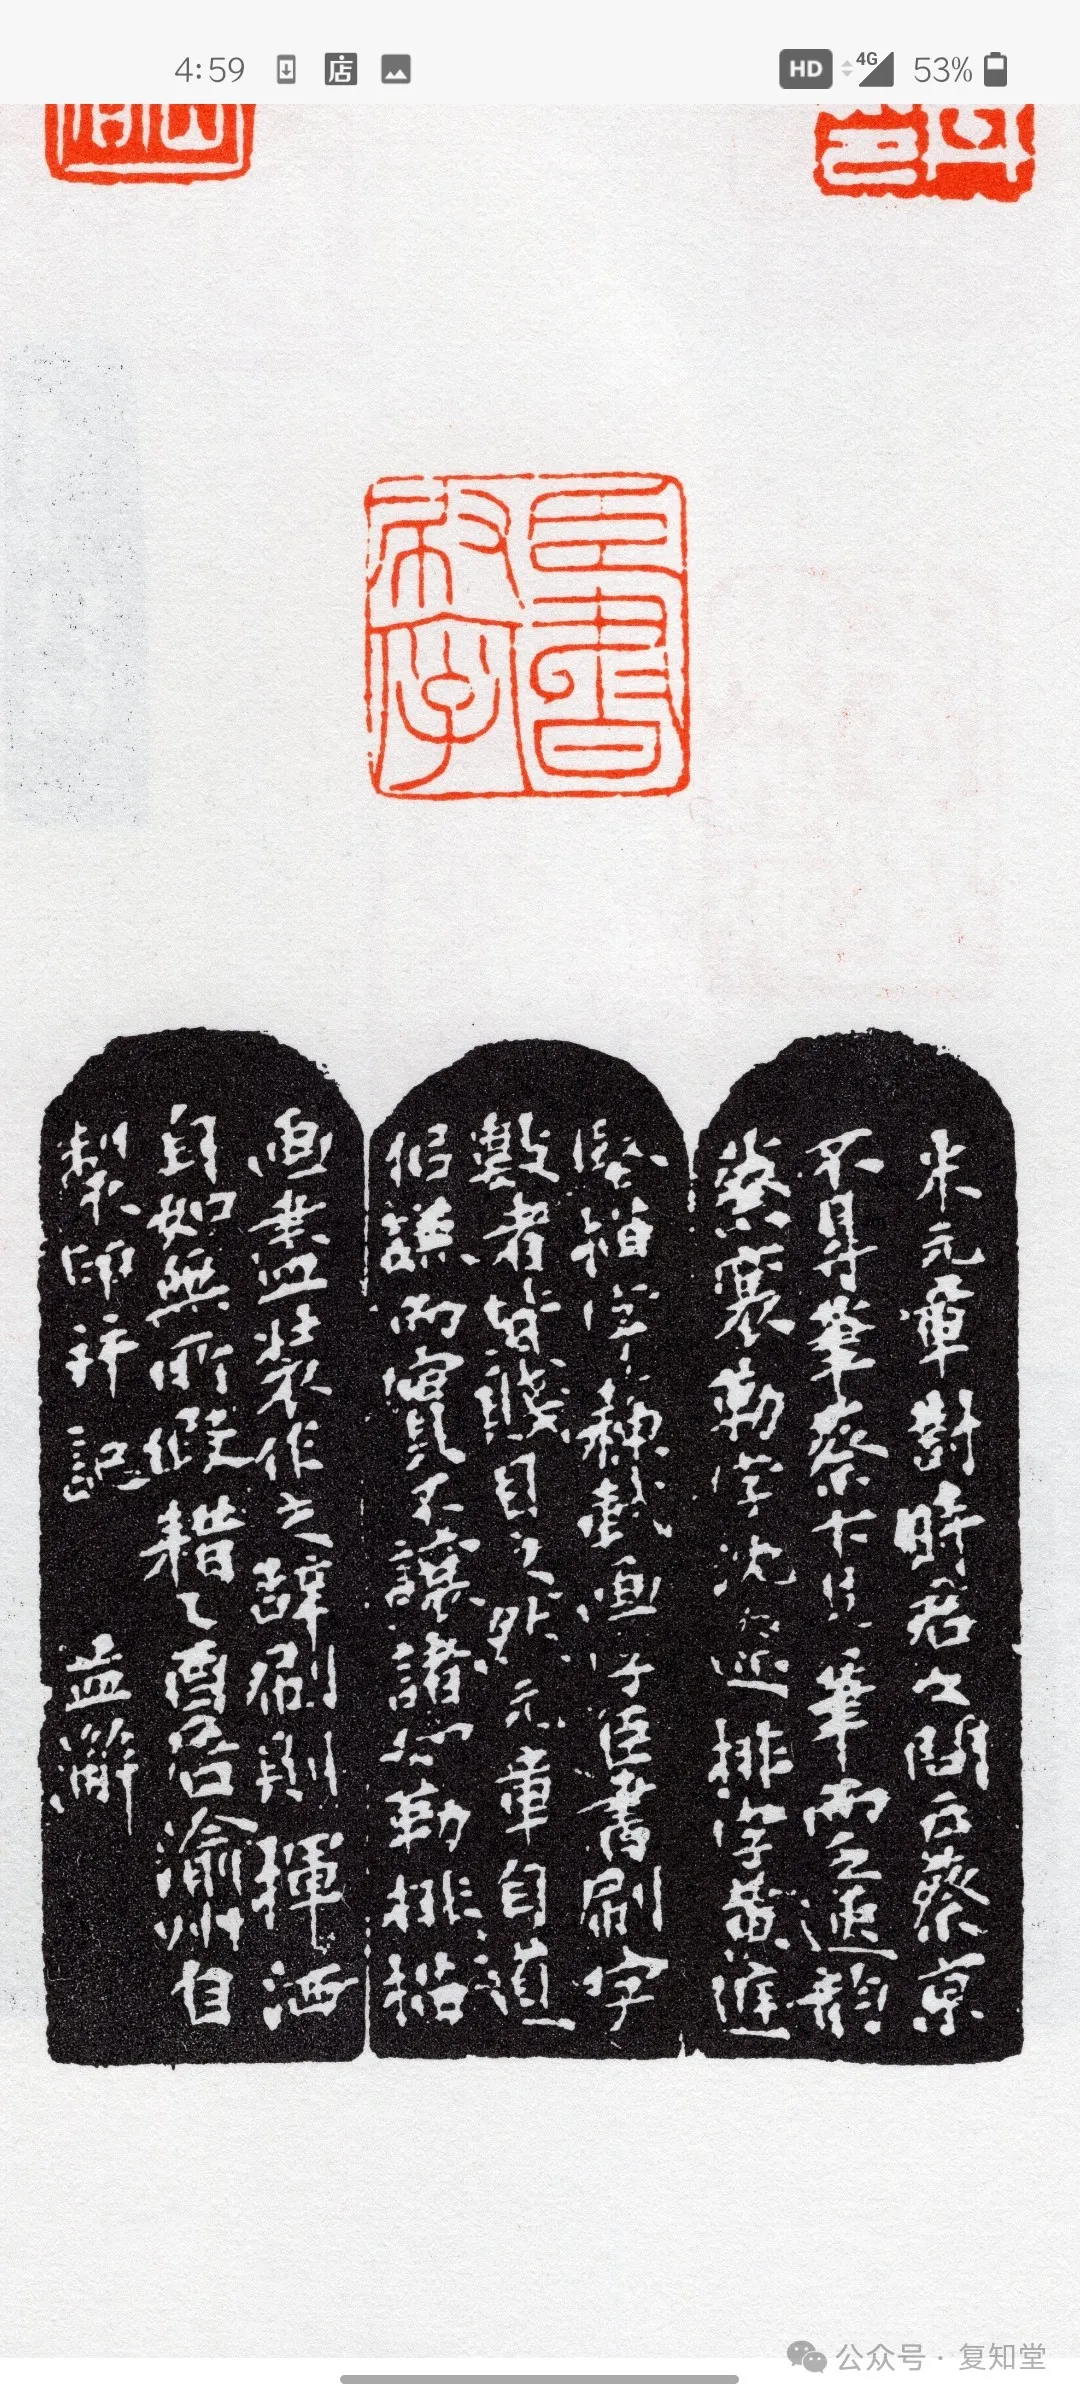 4:59 店 HD 4G 53%
臣書
刷字
米元章對時君之問云蔡京
不得筆蔡卞得筆而乏逸韻
蔡襄勒字沈遼排字黃庭
堅描字蘇軾畫字臣書刷字
數者皆賤目之外元章自道
似謙而實不讓諸如勒排描
畫盡裝作之辭刷則揮洒
自如無所假耤乙酉居渝州自
製 記 益
公众号 · 复知堂